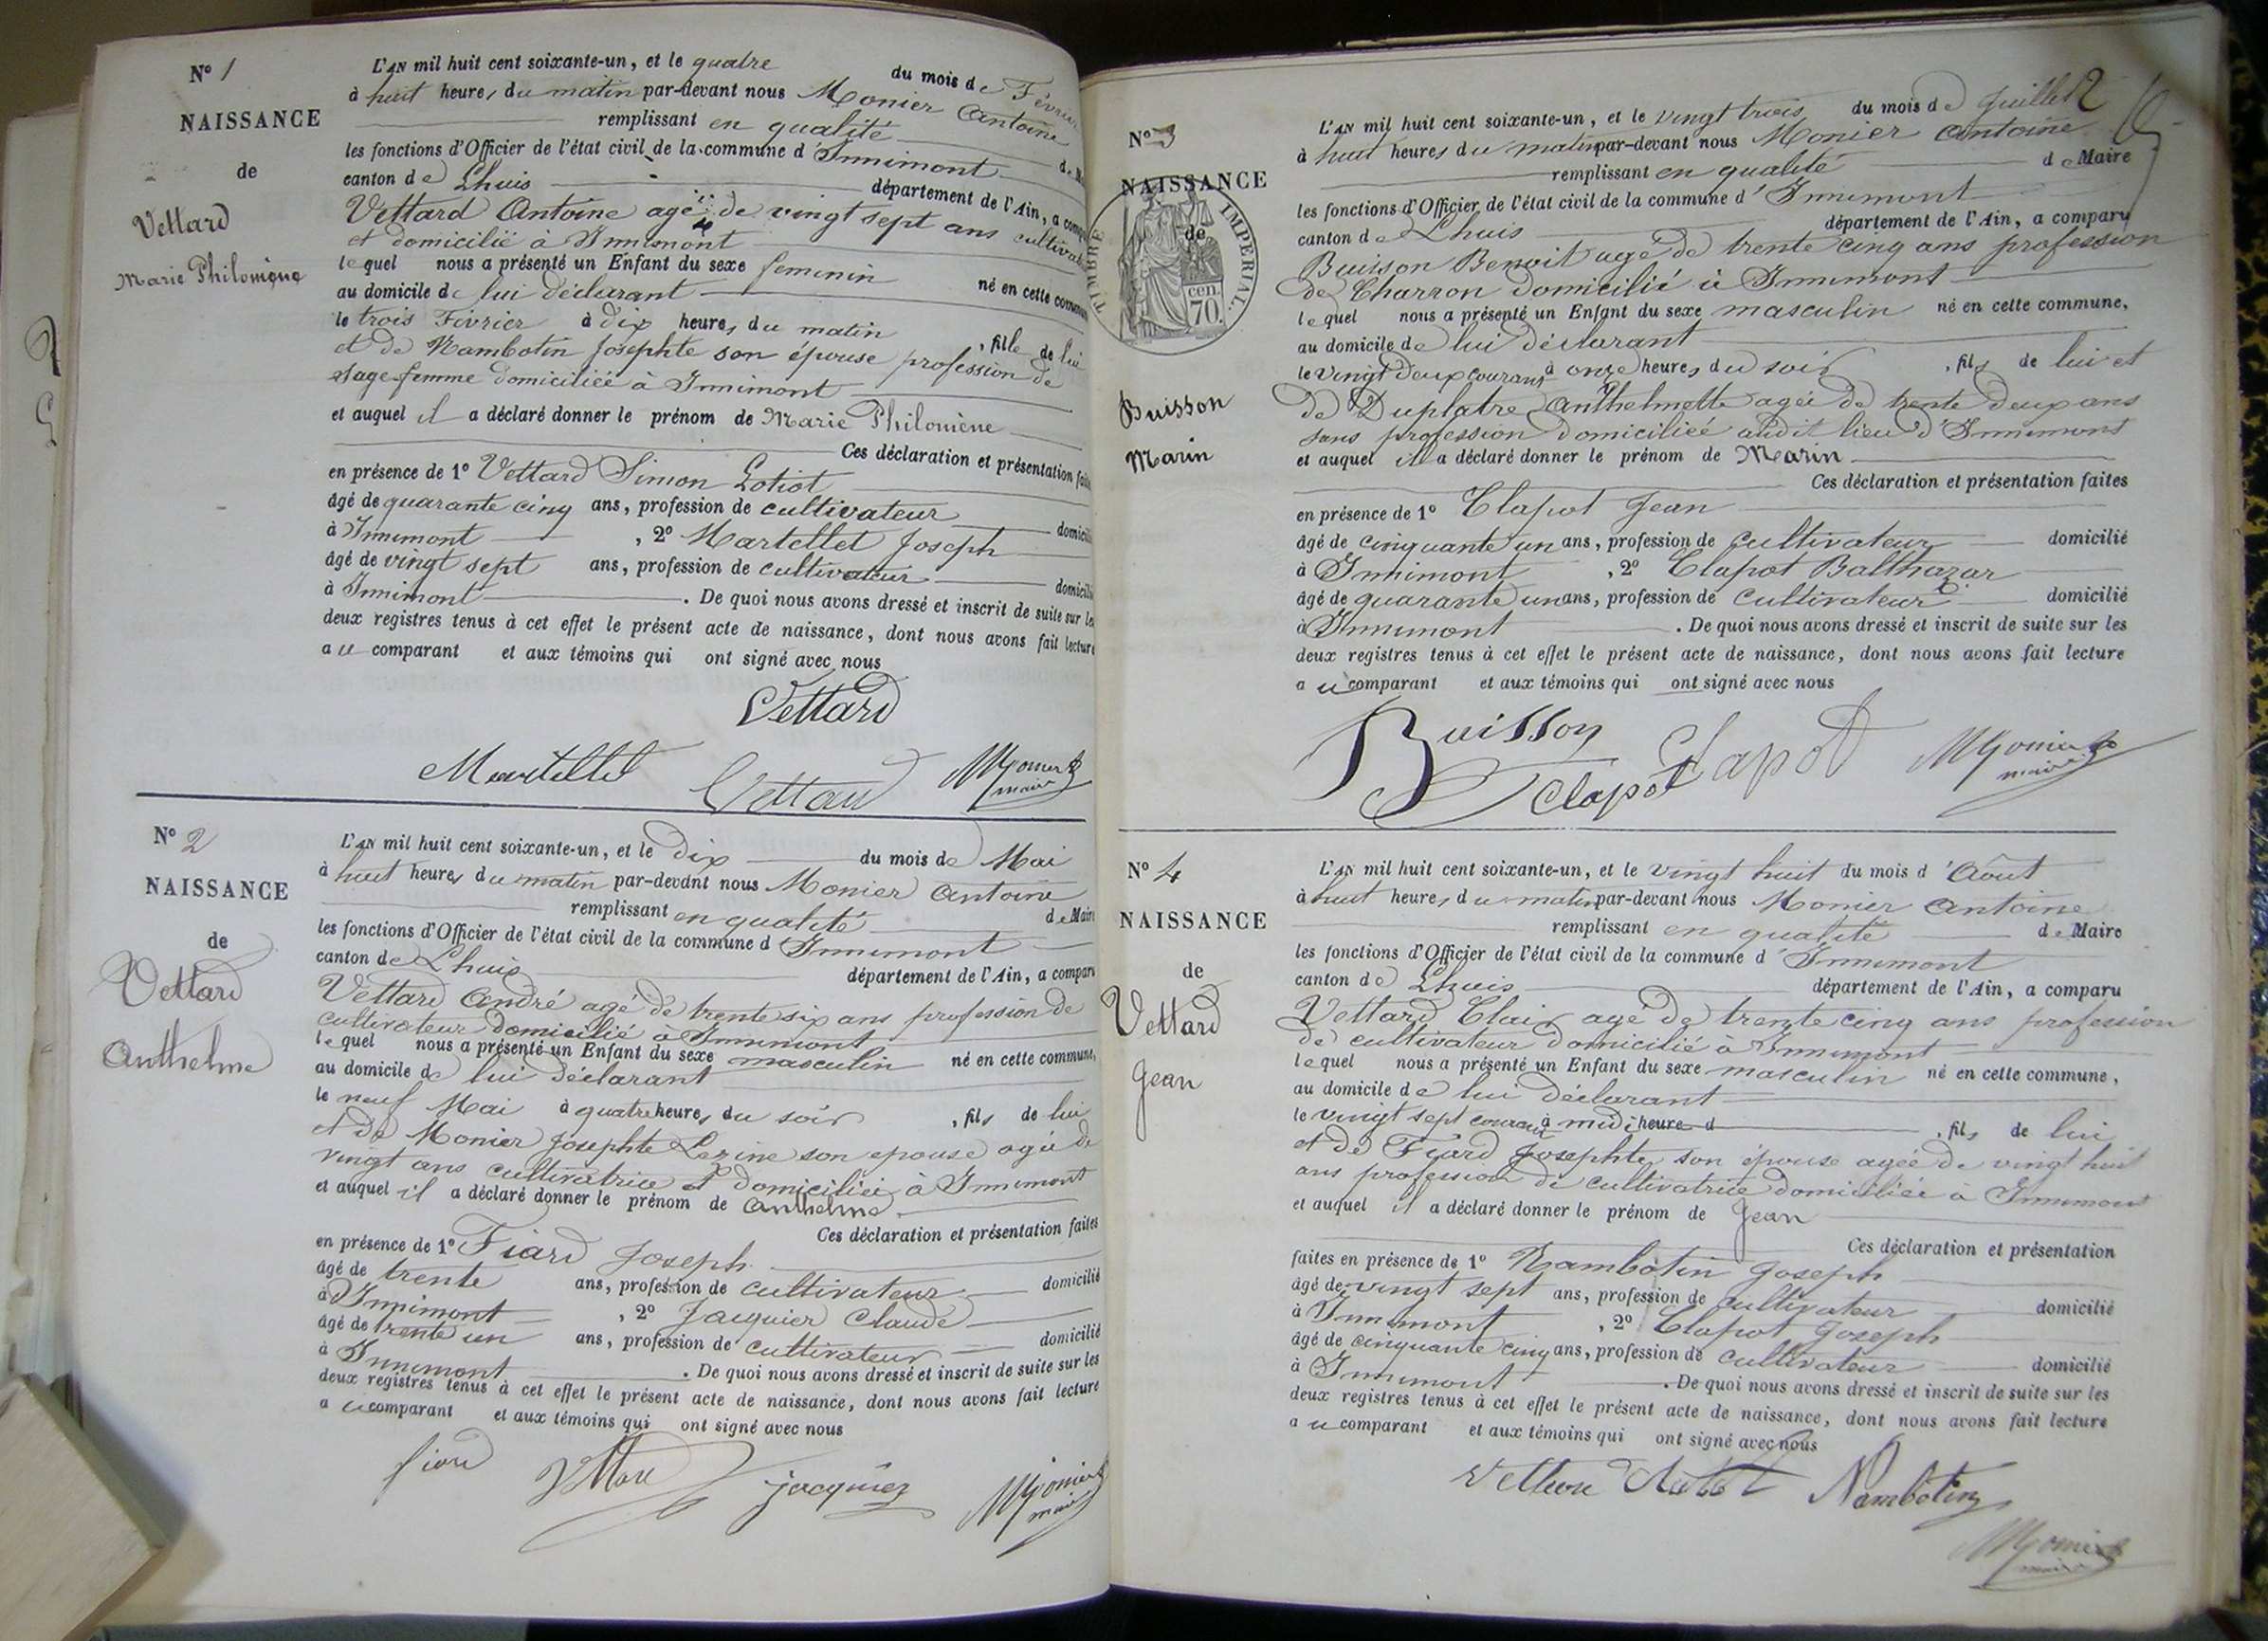 N° 1
NAISSANCE
de
Vettard
Marie Philomène
L'AN mil huit cent soixante-un, et le quatre du mois de Février
à huit heures du matin par-devant nous Monier Antoine
remplissant en qualité de M
les fonctions d'Officier de l'état civil de la commune d'Innimont
canton de Lhuis département de l'Ain, a comp
Vettard Antoine agé de vingt sept ans cultivat
et domicilié à Innimont
lequel nous a présenté un Enfant du sexe feminin né en cette commun
au domicile de lui déclarant
le trois Février à dix heures du matin , fille de lui
et de Nambotin Josephte son épouse profession de
sage femme domiciliée à Innimont
et auquel il a déclaré donner le prénom de Marie Philomène
Ces déclaration et présentation fait
en présence de 1° Vettard Simon Lotiot
âgé de quarante cinq ans, profession de cultivateur domicili
à Innimont , 2° Martellet Joseph
âgé de vingt sept ans, profession de cultivateur domicili
à Innimont . De quoi nous avons dressé et inscrit de suite sur les
deux registres tenus à cet effet le présent acte de naissance, dont nous avons fait lecture
au comparant et aux témoins qui ont signé avec nous
Vettard
Martellet Vettard Monier
maire
N° 2
NAISSANCE
de
Vettard
Anthelme
L'AN mil huit cent soixante-un, et le dix du mois de Mai
à huit heures du matin par-devant nous Monier Antoine
remplissant en qualité de Maire
les fonctions d'Officier de l'état civil de la commune d'Innimont
canton de Lhuis département de l'Ain, a comparu
Vettard André agé de trente six ans profession de
cultivateur domicilié à Innimont
lequel nous a présenté un Enfant du sexe masculin né en cette commune,
au domicile de lui déclarant
le neuf Mai à quatre heures du soir , fils de lui
et de Monier Josephte son epouse agée de
vingt ans cultivatrice et domiciliée à Innimont
et auquel il a déclaré donner le prénom de Anthelme
Ces déclaration et présentation faites
en présence de 1° Fiard Joseph
âgé de trente ans, profession de cultivateur domicilié
à Innimont , 2° Jacquier Claude
âgé de trente un ans, profession de cultivateur domicilié
à Innimont . De quoi nous avons dressé et inscrit de suite sur les
deux registres tenus à cet effet le présent acte de naissance, dont nous avons fait lecture
au comparant et aux témoins qui ont signé avec nous
fiard jacquier Monier
maire
2
N° 3
NAISSANCE
de
TIMBRE IMPERIAL
cen.
70.
Buisson
Marin
L'AN mil huit cent soixante-un, et le vingt trois du mois de Juillet
à huit heures du matin par-devant nous Monier Antoine
remplissant en qualité de Maire
les fonctions d'Officier de l'état civil de la commune d'Innimont
canton de Lhuis département de l'Ain, a comparu
Buisson Benoit agé de trente cinq ans profession
de Charron domicilié à Innimont
lequel nous a présenté un Enfant du sexe masculin né en cette commune,
au domicile de lui déclarant
le vingt deux courant à onze heures du soir , fils de lui et
de Duplatre Anthelmette agée de trente deux ans
sans profession domiciliée audit lieu d'Innimont
et auquel il a déclaré donner le prénom de Marin
Ces déclaration et présentation faites
en présence de 1° Clapot Jean
âgé de cinquante un ans, profession de cultivateur domicilié
à Innimont , 2° Clapot Balthazar
âgé de quarante un ans, profession de cultivateur domicilié
à Innimont . De quoi nous avons dressé et inscrit de suite sur les
deux registres tenus à cet effet le présent acte de naissance, dont nous avons fait lecture
au comparant et aux témoins qui ont signé avec nous
Buisson Clapot Monier
Clapot maire
N° 4
NAISSANCE
de
Vettard
Jean
L'AN mil huit cent soixante-un, et le vingt huit du mois d'Août
à huit heures du matin par-devant nous Monier Antoine
remplissant en qualité de Maire
les fonctions d'Officier de l'état civil de la commune d'Innimont
canton de Lhuis département de l'Ain, a comparu
Vettard Clair agé de trente cinq ans profession
de cultivateur domicilié à Innimont
lequel nous a présenté un Enfant du sexe masculin né en cette commune,
au domicile de lui déclarant
le vingt sept courant à midi heure d , fils de lui
et de Fiard Josephte son épouse agée de vingt huit
ans profession de cultivatrice domiciliée à Innimont
et auquel il a déclaré donner le prénom de Jean
Ces déclaration et présentation
faites en présence de 1° Nambotin Joseph
âgé de vingt sept ans, profession de cultivateur domicilié
à Innimont , 2° Clapot Joseph
âgé de cinquante cinq ans, profession de cultivateur domicilié
à Innimont . De quoi nous avons dressé et inscrit de suite sur les
deux registres tenus à cet effet le présent acte de naissance, dont nous avons fait lecture
au comparant et aux témoins qui ont signé avec nous
Nambotin
Monier
maire